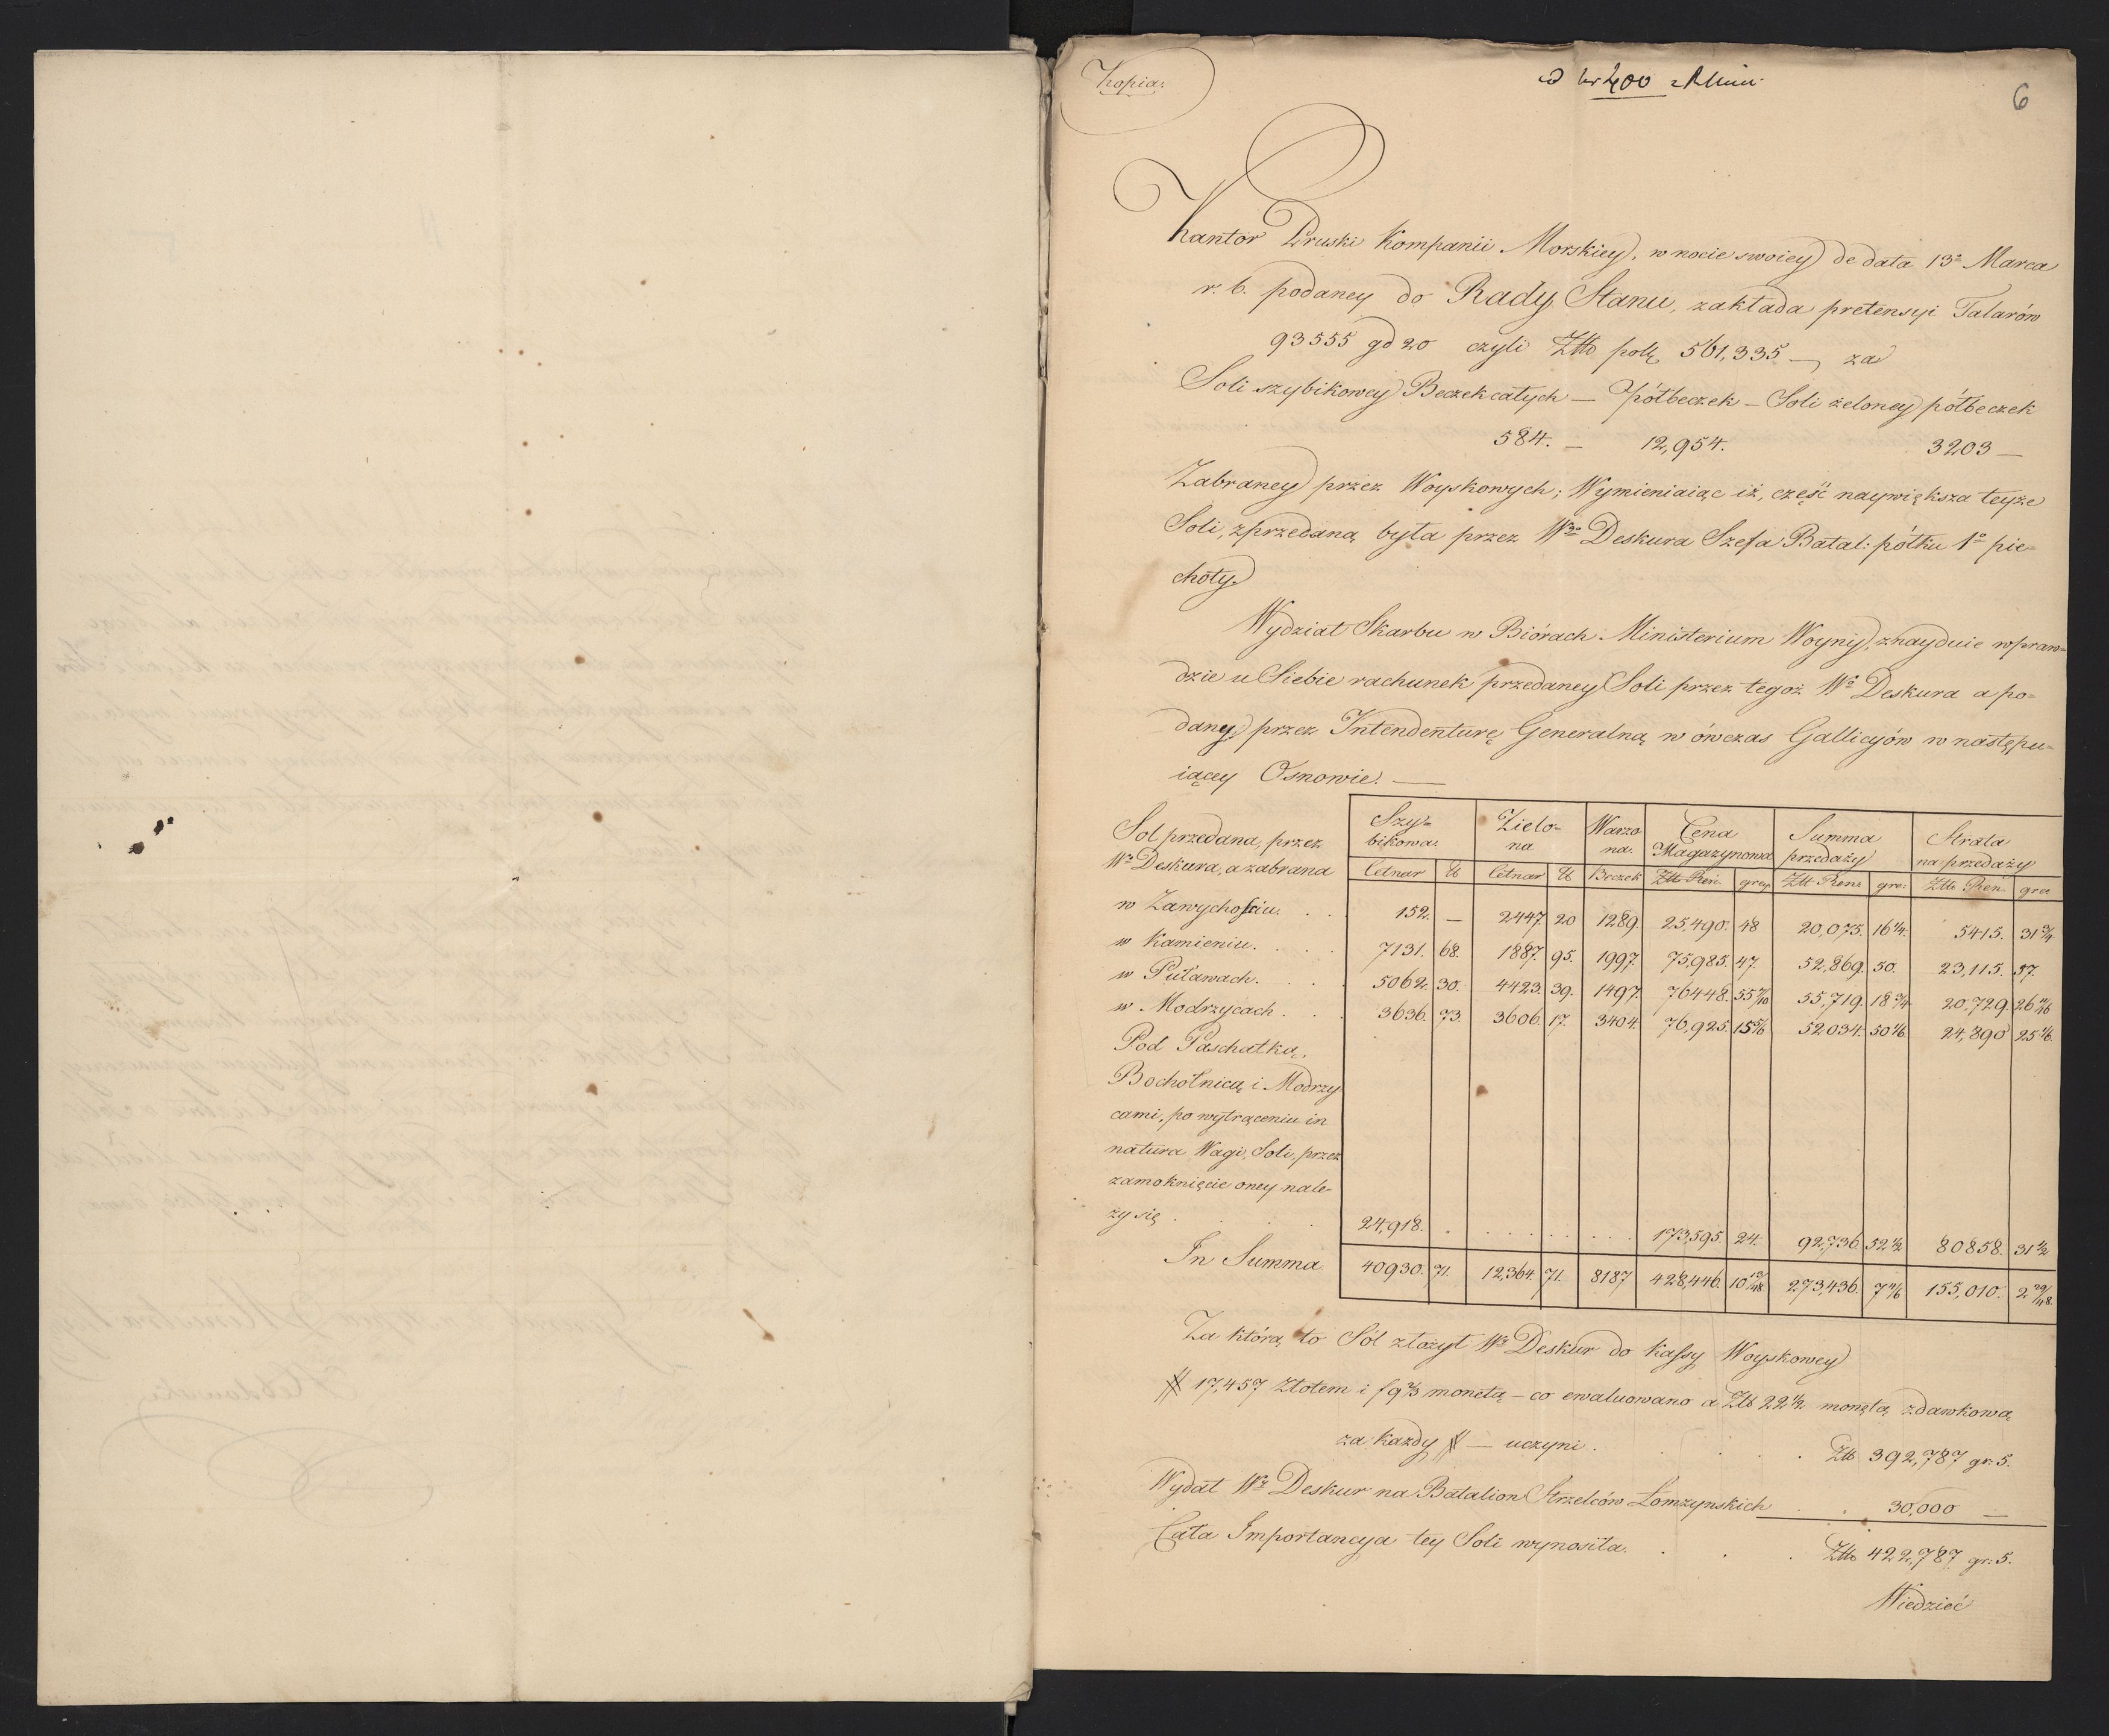 Kopia.
400
6
Kantor Pruski Kompanii Morskiey, w nocie swoiey de data 13o Marca
r. b. podaney do Rady Stanu, zakłada pretensyi Talarów
93555 gd 20 czyli Złło polş 561,335 —, za
Soli szybikowey Beczek całych — Półbeczek — Soli zeloney półbeczek
584. — 12,954. 3203 —
Zabraney przez Woyskowych; Wymieniaiąc iż, część naywiększa teyże
Soli, zprzedaną była przez Wgo Deskura Szefa Batal: półku 1o pie=
choty
Wydział Skarbu w Biórach Ministerium Woyny, znayduie wpraw=
dzie u Siebie rachunek przedaney Soli przez tegoż Wo Deskura a po=
dany przez Intendenturę Generalną w ówczas Gallicyów w następu=
iącey Osnowie. —
Sol przedana, przez Wo Deskura, a zabrana | Szy=bikowa. | Zielo=na | Warzona. | Cena Magazynowa | Summa przedaży | Strata na przedaży
Cetnar | ℔ | Cetnar | ℔ | Beczek | Złł Reń. | grey | Złł Rens | gre: | Złło Reń. | gre
w Zawychościu. . . 152. — 2447. 20 1289. 25,490. 48 20,075. 16 1/4. 5415. 31 3/4
w Kamieniu. . . . 7131. 68. 1887. 95. 1997. 75,985. 47. 52,869. 50. 23,115. 57.
w Puławach. . . . 5062. 30. 4423. 39. 1497. 76448. 55 55,719. 18 3/4 20,729. 26
w Modrzycach . . . 3636. 73. 3606. 17. 3404. 76,925. 15 5/6 52034. 50 4/6. 24,890 25 1/6.
Pod Paschałką,
Bochotnicą i Modrzy
cami, po wytrąceniu in
natura Wagi, Soli, przez
zamoknięcie oney nale=
ży się . . . . 24,918. . . . . . . . 173,595. 24. 92,736. 52 1/2 80858. 31 1/2
In Summa. 40930. 71. 12,364. 71. 8187 428,446. 10 19/48. 273,436. 7 4/6 155,010. 2 29/48.
Za którą to Sól złożył Wy Deskur do kassy Woyskowey
# 17,457 Złotem i f 9 2/3 monetą — co ewaluowano a Złł 22 1/2 monętą zdawkową
za każdy # — uczyni . . . . Złł 392,787 gr: 5.
Wydał Wy Deskur na Batalion Strzelców Łomzynskich . . 30,000 —
Cała Importancya tey Soli wynosiła. . . . Złło 422,787 gr: 5.
Wiedzieć